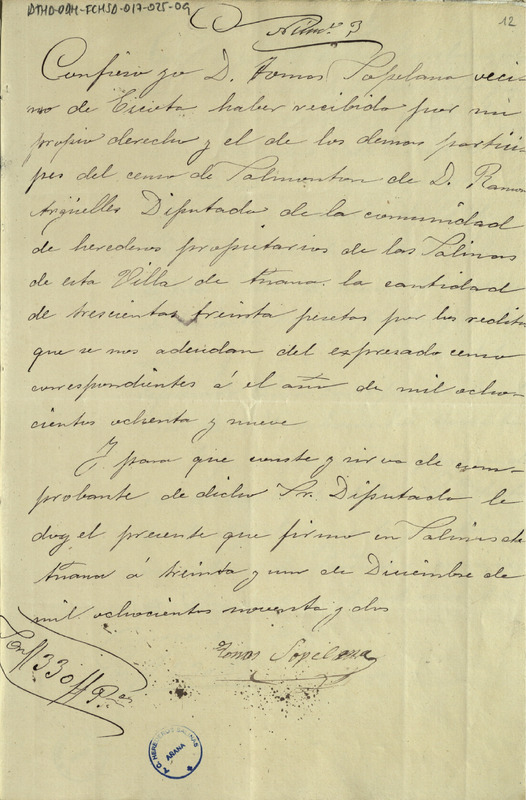 DTHD-DAH-FCHSD-017-025-09
12
Núm.º 3
Confieso yo D. Tomas Sopelana veci-
no de haber recibido por mi
propio derecho y el de los demas partici-
pes del censo de Salmanton de D. Ramon
Argüelles Diputado de la comunidad
de herederos propietarios de las Salinas
de esta Villa de Añana. la cantidad
de trescientas treinta pesetas por los reditos
que se nos adeudan del espresado censo
correspondientes á el año de mil ocho-
cientos ochenta y nueve
Y para que conste y sirva de com-
probante de dicho Sr. Diputado le
doy el presente que firmo en Salinas de
Añana á treinta y uno de Diciembre de
mil ochocientos noventa y dos
Son // 330 // Ptas
Tomas Sopelana
HEREDEROS SALINAS
AÑANA